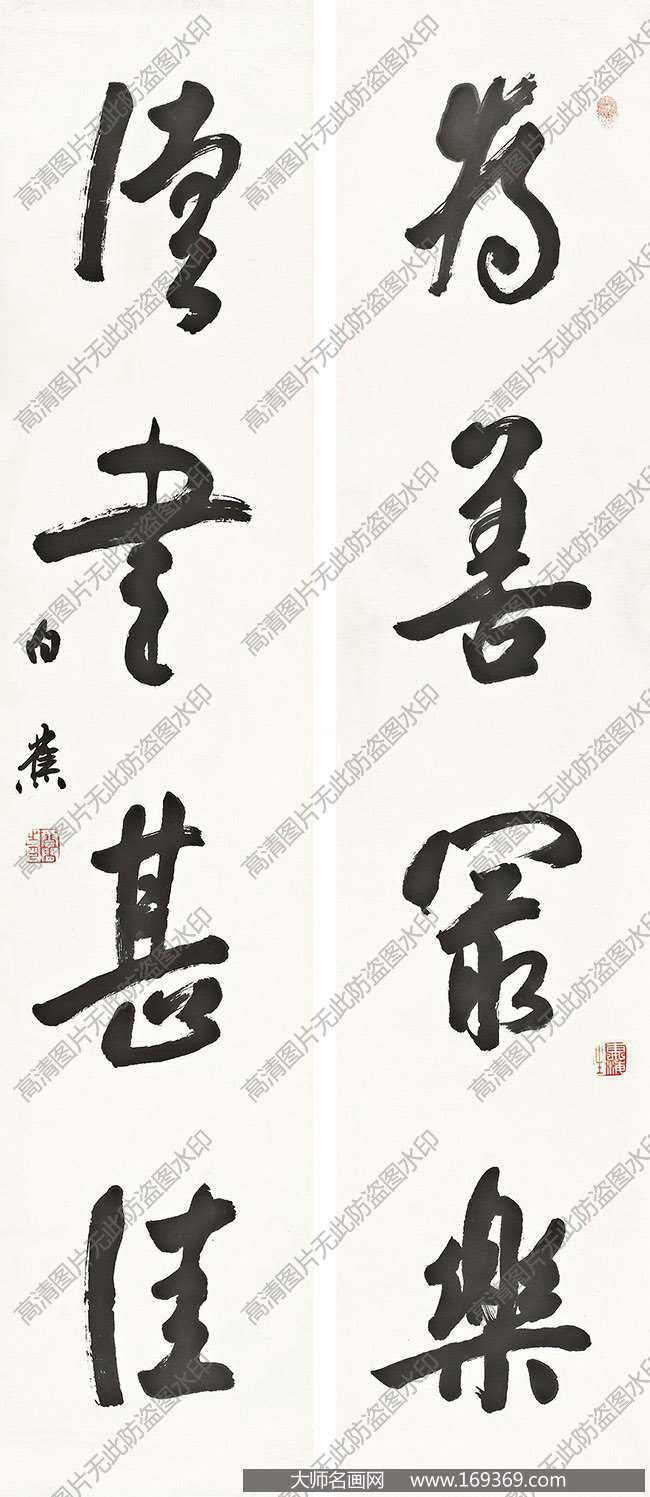 為善㝡樂
讀書甚佳
白蕉
高清图片无此防盗图水印
大师名画网 www.169369.com